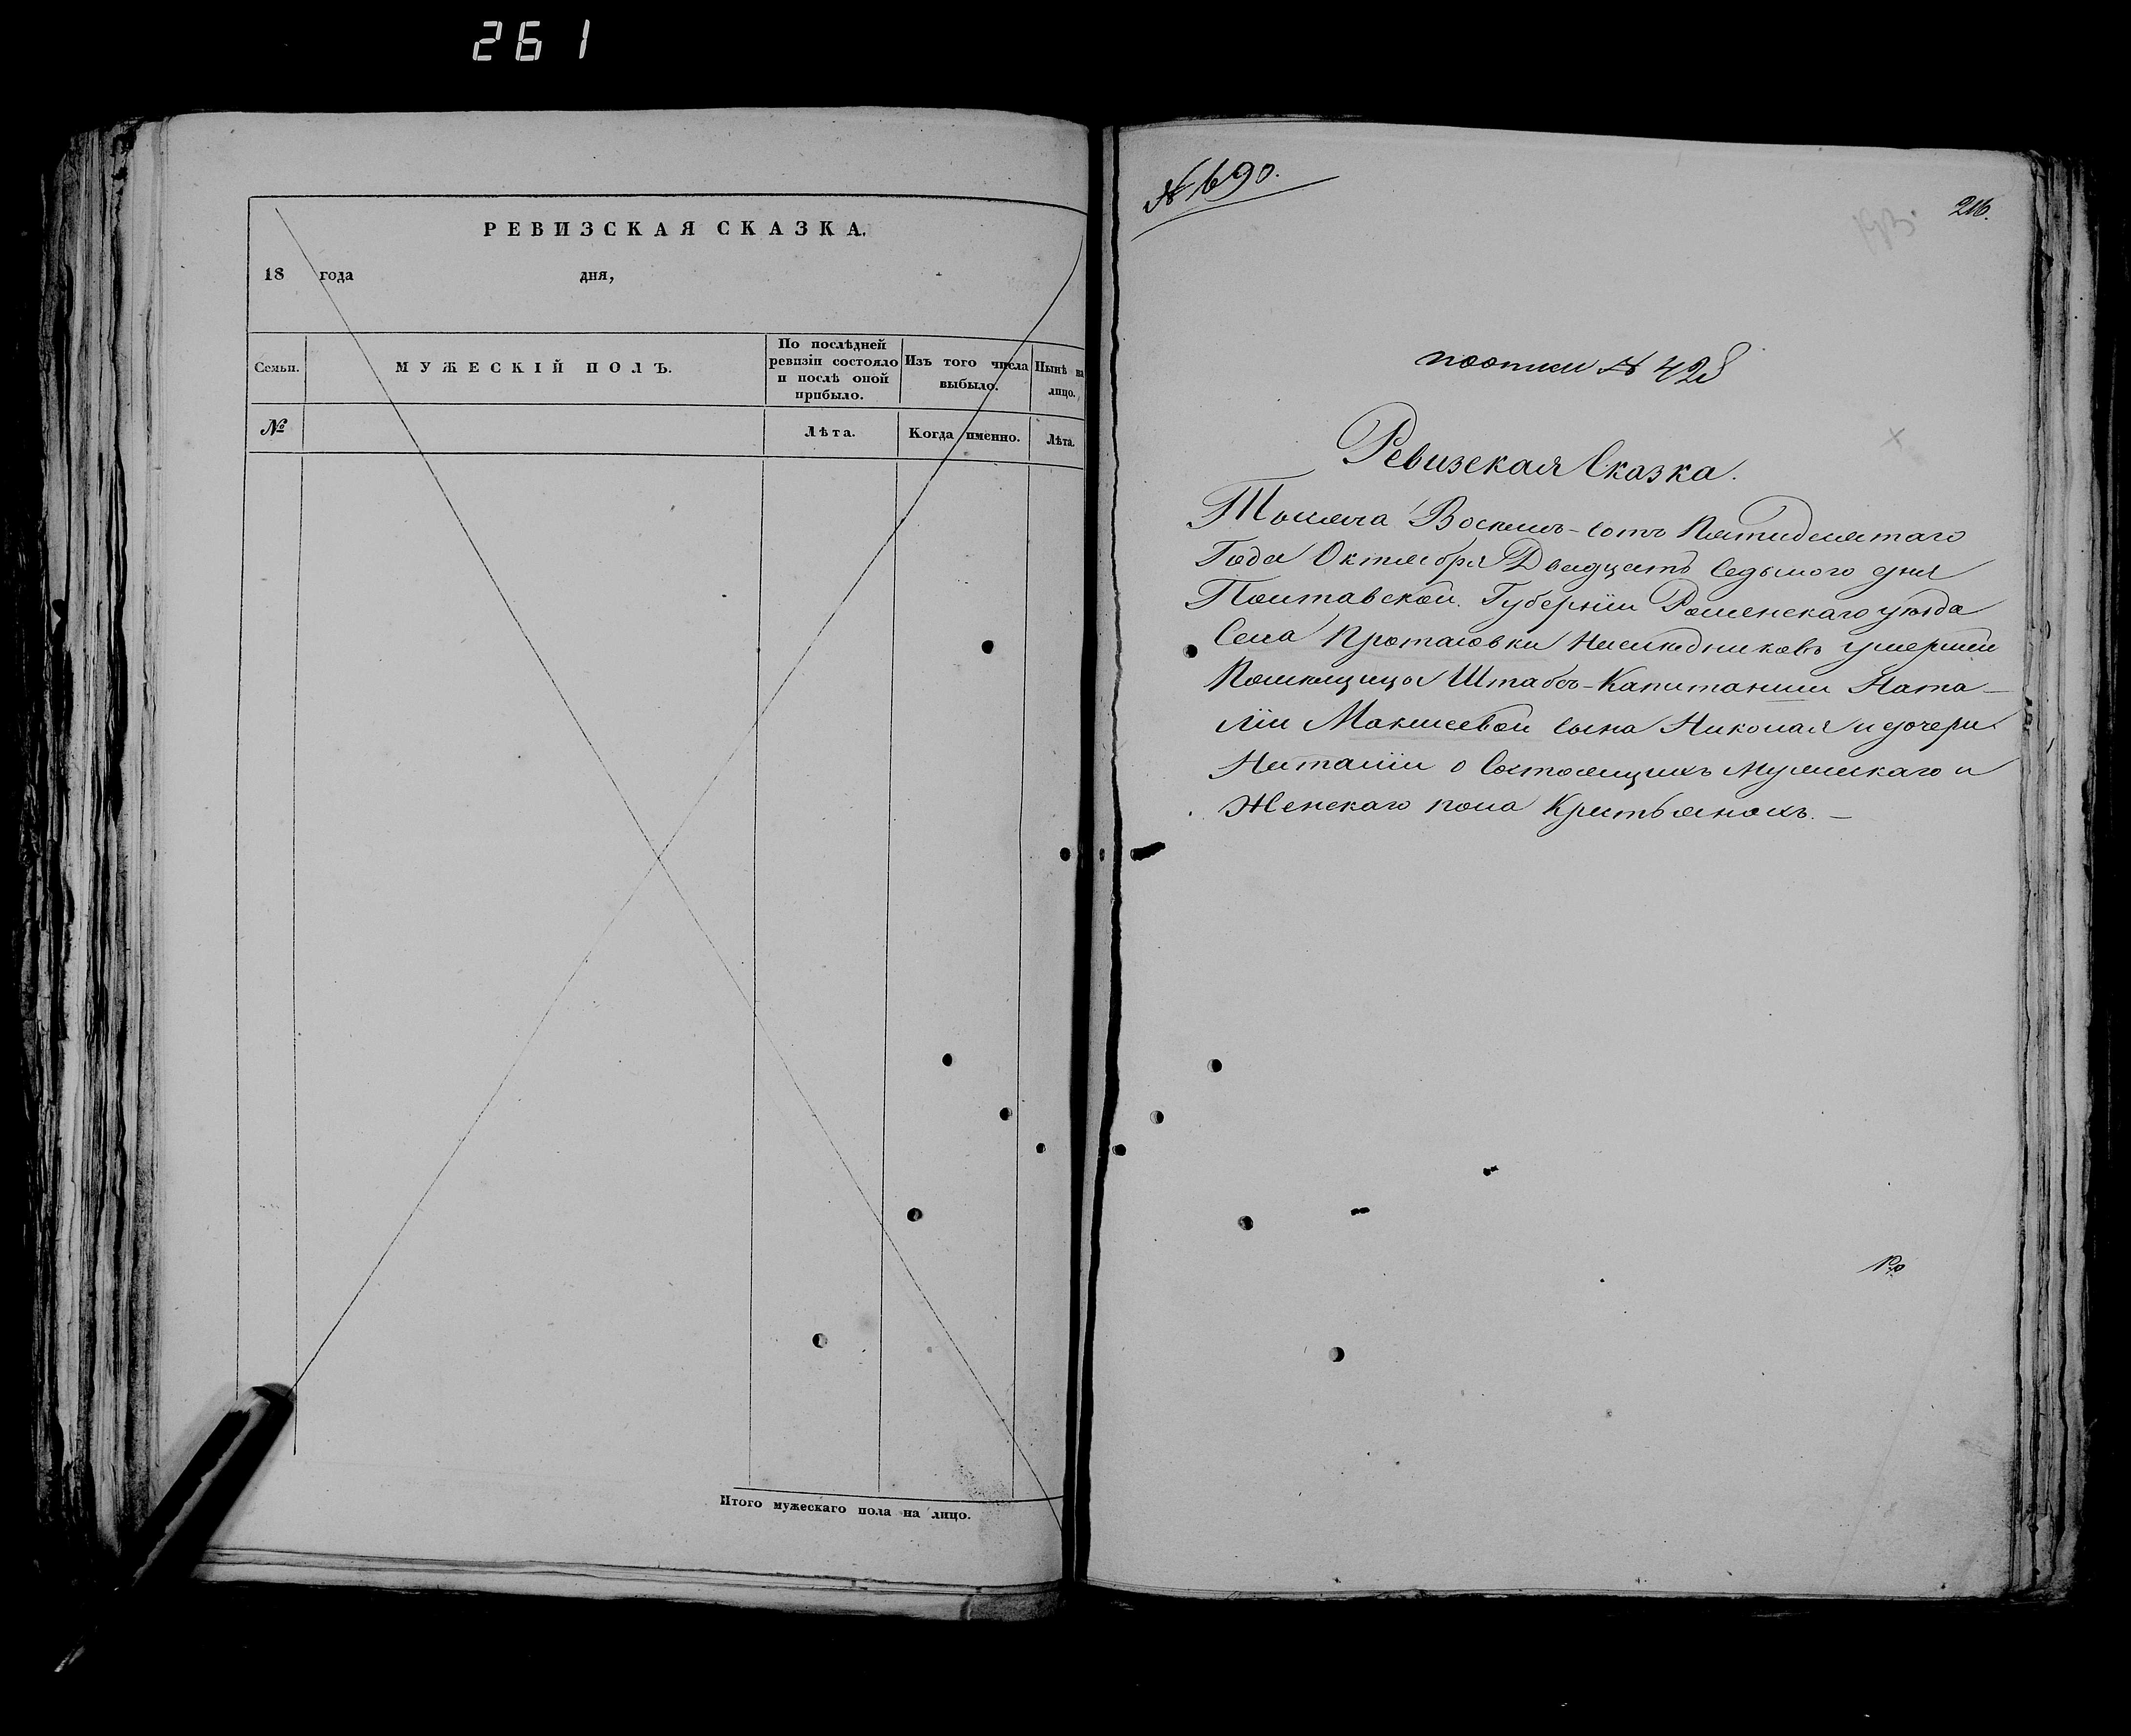 261
РЕВИЗСКАЯ СКАЗКА.
18 года дня,
Семьи.
МУЖЕСКІЙ ПОЛЪ.
По послѣдней
ревизіи состояло
и послѣ оной
прибыло.
Изъ того числа
выбыло.
Нынѣ на
лицо.
№
Лѣта.
Когда именно.
Лѣта
Итого мужескаго пола на лицо.
№ 690.
216.
№ 428
Ревизская Сказка.
Тысяча Восемь-сотъ Пятидесятаго
Года Октября Двадцать Седьмого дня
Полтавской Губерніи Роменскаго уезда
Села Протасовки Наследниковъ умершей
Помещицы Штабсъ-Капитанши Ната-
ліи Максисевой сына Николая и дочери
Наталіи о Состоящихъ Мужескаго и
Женскаго пола Крестьянахъ. —